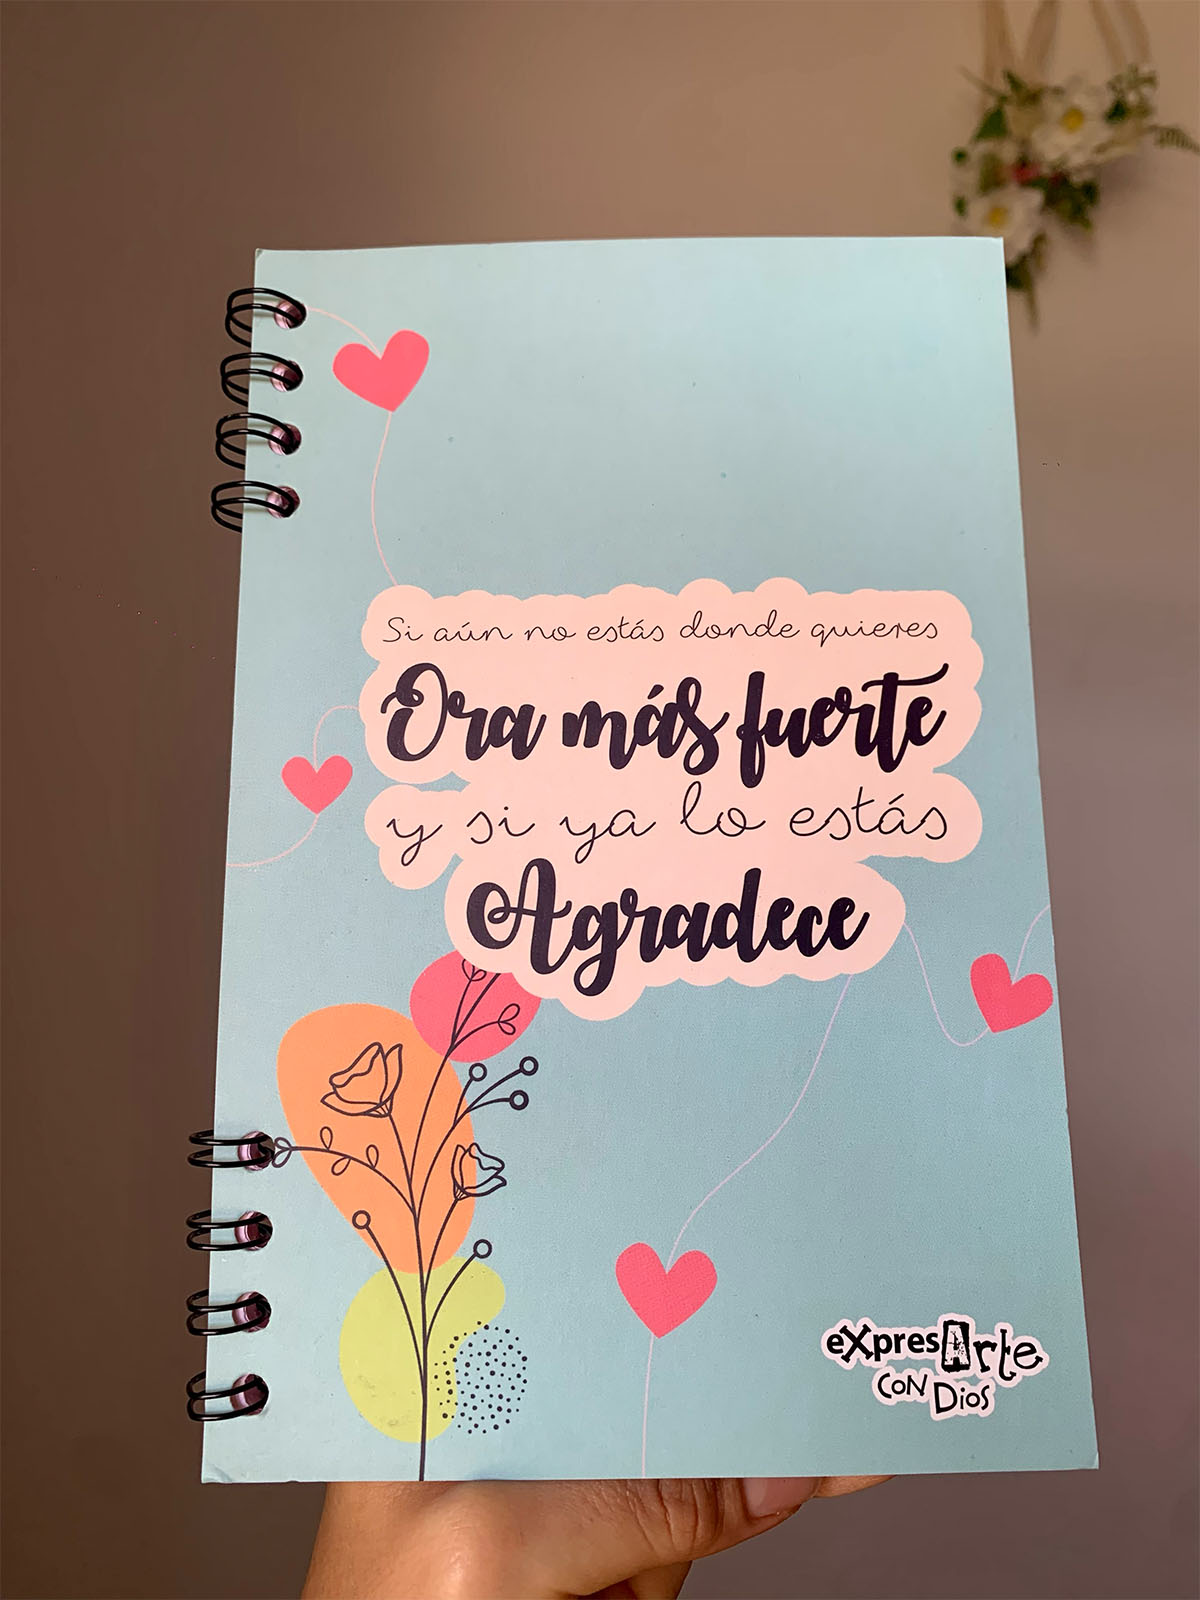 Si aún no estás donde quieres
Ora más fuerte
y si ya lo estás
Agradece
eXpresArte
CON Dios